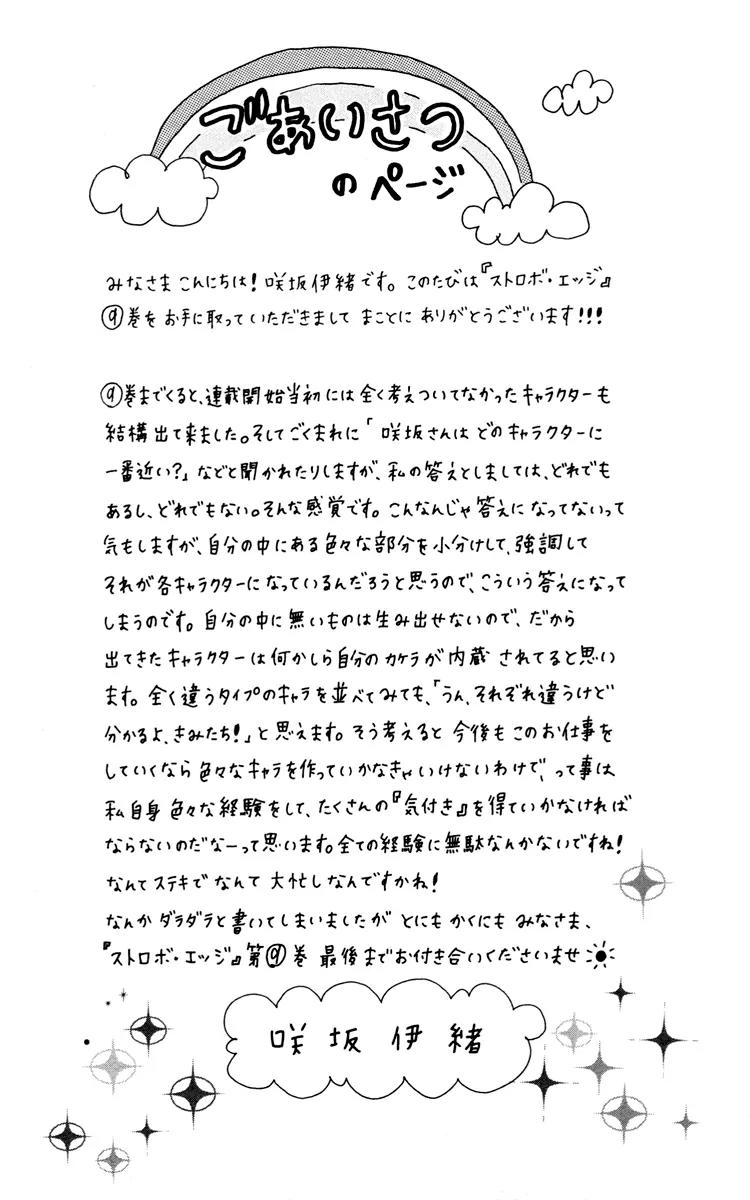 ごあいさつ
のページ
みなさま こんにちは！咲坂伊緒です。このたびは『ストロボ・エッジ』
⑨巻をお手に取っていただきまして まことに ありがとうございます！！！
⑨巻までくると、連載開始当初には全く考えついてなかったキャラクターも
結構出て来ました。そしてごくまれに「咲坂さんは どのキャラクターに
一番近い？」などと聞かれたりしますが、私の答えとしましては、どれでも
あるし、どれでもない。そんな感覚です。こんなんじゃ答えに なってないって
気もしますが、自分の中にある色々な部分を小分けして、強調して
それが各キャラクターになっているんだろうと思うので、こういう答えになって
しまうのです。自分の中に無いものは生み出せないので、だから
出てきたキャラクターは何かしら自分のカケラが内蔵 されてると思い
ます。全く違うタイプのキャラを並べてみても、「うん、それぞれ違うけど
分かるよ、きみたち！」と思えます。そう考えると 今後も このお仕事を
していくなら色々なキャラを作っていかなきゃいけないわけで、って事は
私自身 色々な経験をして、たくさんの『気付き』を得ていかなければ
ならないのだなーって思います。全ての経験に無駄なんかないですね！
なんてステキで なんて 大忙しなんですかね！
なんか ダラダラと書いてしまいましたが とにも かくにも みなさま、
『ストロボ・エッジ』第⑨巻 最後までお付き合いくださいませ
咲坂伊緒